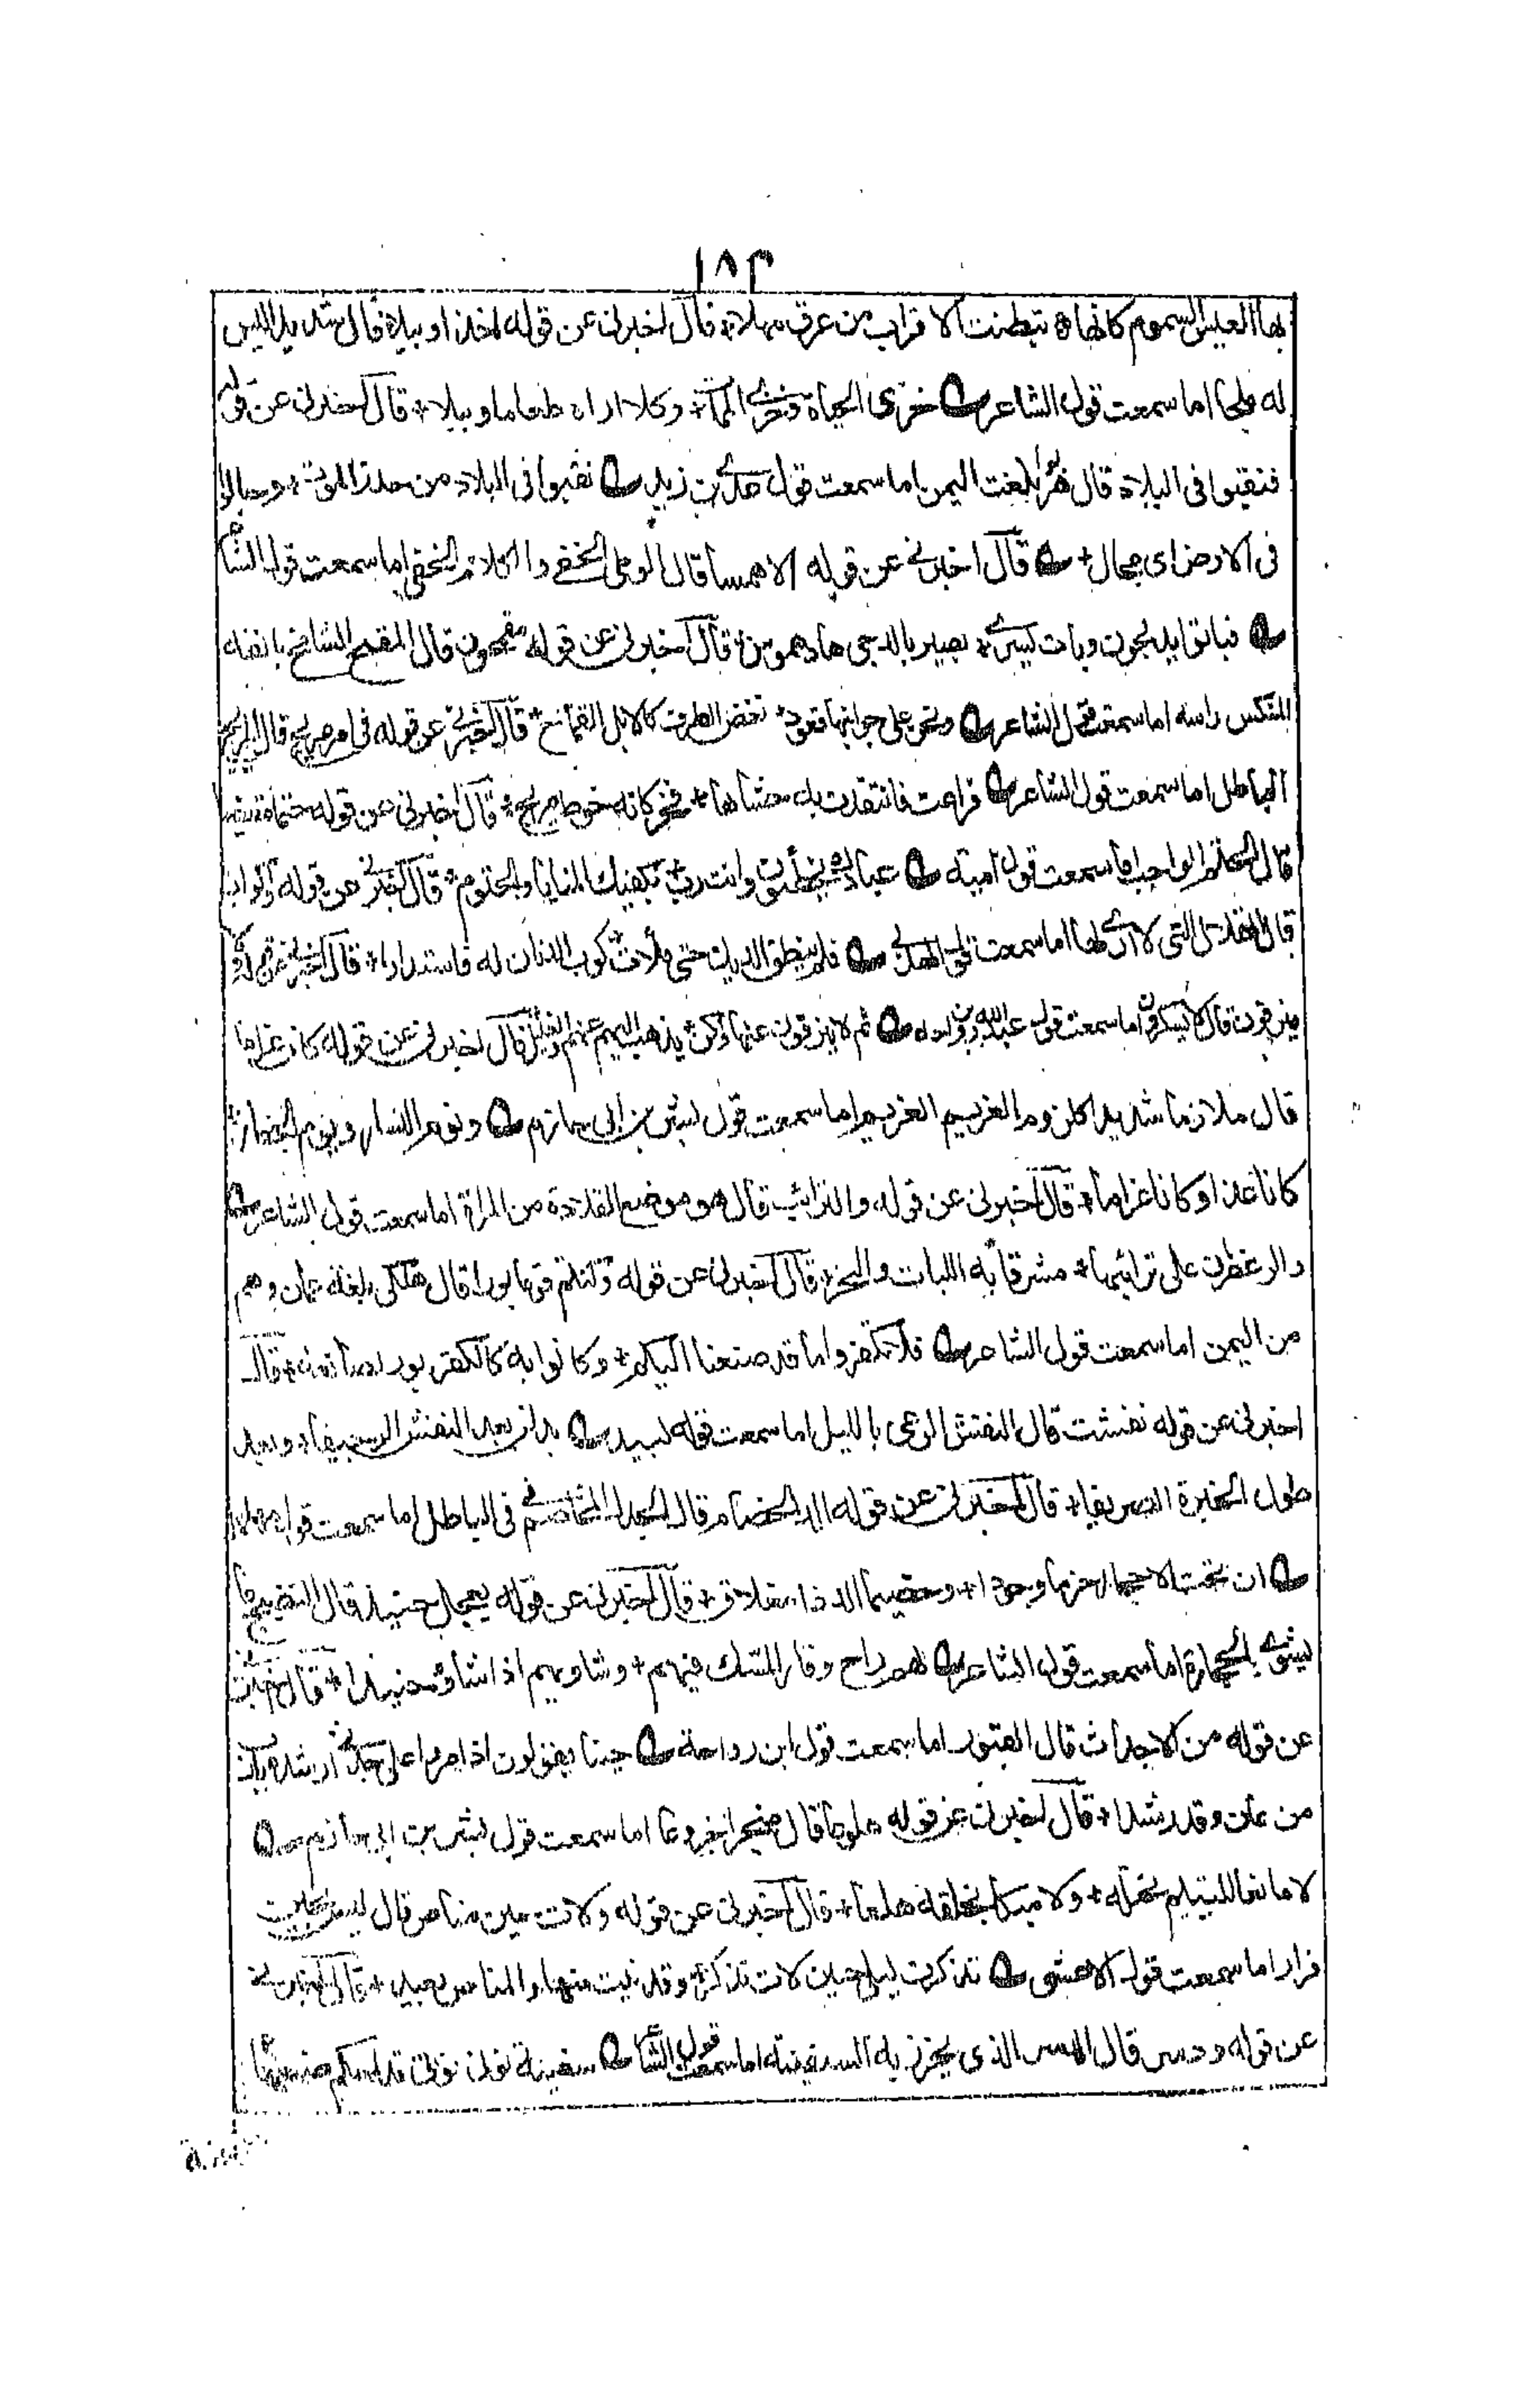 ١٨٣
بها العيس السموم كانها * تبطنت الاقراب من عرق مهلا * قال اخبرني عن قوله اخذا وبيلا قال شديدا ليس
له ملجأ اما سمعت قول الشاعر خزى الحياة وخزى الممات * وكلا اراه طعاما وبيلا * قال اخبرني عن قوله
فنقبوا في البلاد قال هربوا بلغت اليمن اما سمعت قول عدي بن زيد نقبوا في البلاد من حذر الموت * وجالوا
في الارض اي مجال * قال اخبرني عن قوله الا همسا قال الوطى الخفي والكلام الخفي اما سمعت قول الشا
فباتوا يدلجون وبات يسرى * بصير بالدجى هاد هموس * قال اخبرني عن قوله مقمحون قال المقمح الشامخ بانفه
المنكس راسه اما سمعت قول الشاعر ونحن على جوانبها قعود * نغض الطرف كالابل القماح * قال اخبرني عن قوله في امر مريج قال المريج
الباطل اما سمعت قول الشاعر فراعت فانتقدت به حشاها * فخر كانه خوط مريج * قال اخبرني عن قوله حتما مقضيا
قال الحتم الواجب اما سمعت قول امية عبادك يخطئون وانت رب * بكفيك المنايا والحتوم * قال اخبرني عن قوله واكواب
قال القلال التي لا عرى لها اما سمعت قول الهذلي فلم ينطق الديك حتى ملأت * كوب الدنان له فاستدارا * قال اخبرني عن قوله ولا هم
ينزفون قال لا يسكرون اما سمعت قول عبد الله بن رواحة ثم لا ينزفون عنها ولكن * يذهب الهم عنهم والغليل قال اخبرني عن قوله كان غراما
قال ملازما شديدا كلزوم الغريم الغريم اما سمعت قول بشر بن ابي حازم ويوم النسار ويوم الجفار *
كانا عذابا وكانا غراما * قال اخبرني عن قوله والترائب قال هو موضع القلادة من المرأة اما سمعت قول الشاعر
والزعفران على ترائبها * مشرقا به اللبات والنحر * قال اخبرني عن قوله وكنتم قوما بورا قال هلكى بلغة عمان وهم
من اليمن اما سمعت قول الشاعر فلا تكفروا ما قد صنعنا اليكم * وكافوا به فالكفر بور لصانعه * قال
اخبرني عن قوله نفشت قال النفش الرعي بالليل اما سمعت قول لبيد بدلن بعد النفش الوجيفا * وبعد
طول الجرة الصريفا * قال اخبرني عن قوله الد الخصام قال الجدل المخاصم في الباطل اما سمعت قول مهلهل
ان تحت الاحجار حزما وجودا * وخصيما الد ذا مغلاق * قال اخبرني عن قوله بعجل حنيذ قال النضيج ما
يشوى بالحجارة اما سمعت قول الشاعر لهم راح وفار المسك فيهم * وشاويهم اذا شاؤا حنيذا * قال اخبرني
عن قوله من الاجداث قال القبور اما سمعت قول ابن رواحة حينا يقولون اذا مروا على جدثي ارشده يا رب
من عان وقد رشدا * قال اخبرني عن قوله هلوعا قال ضجرا جزوعا اما سمعت قول بشر بن ابي حازم
لا مانعا لليتيم نحلته * ولا مكبا لخلقه هلعا * قال اخبرني عن قوله ولات حين مناص قال ليس بحين
فرار اما سمعت قول الاعشى تذكرت ليلى حين لات تذكر * وقد بنت منها والمناص بعيد * قال اخبرني
عن قوله ودسر قال الدسر الذي يخرز به السفينة اما سمعت قول الشا سفينة نوتي قد احكم صنعتها